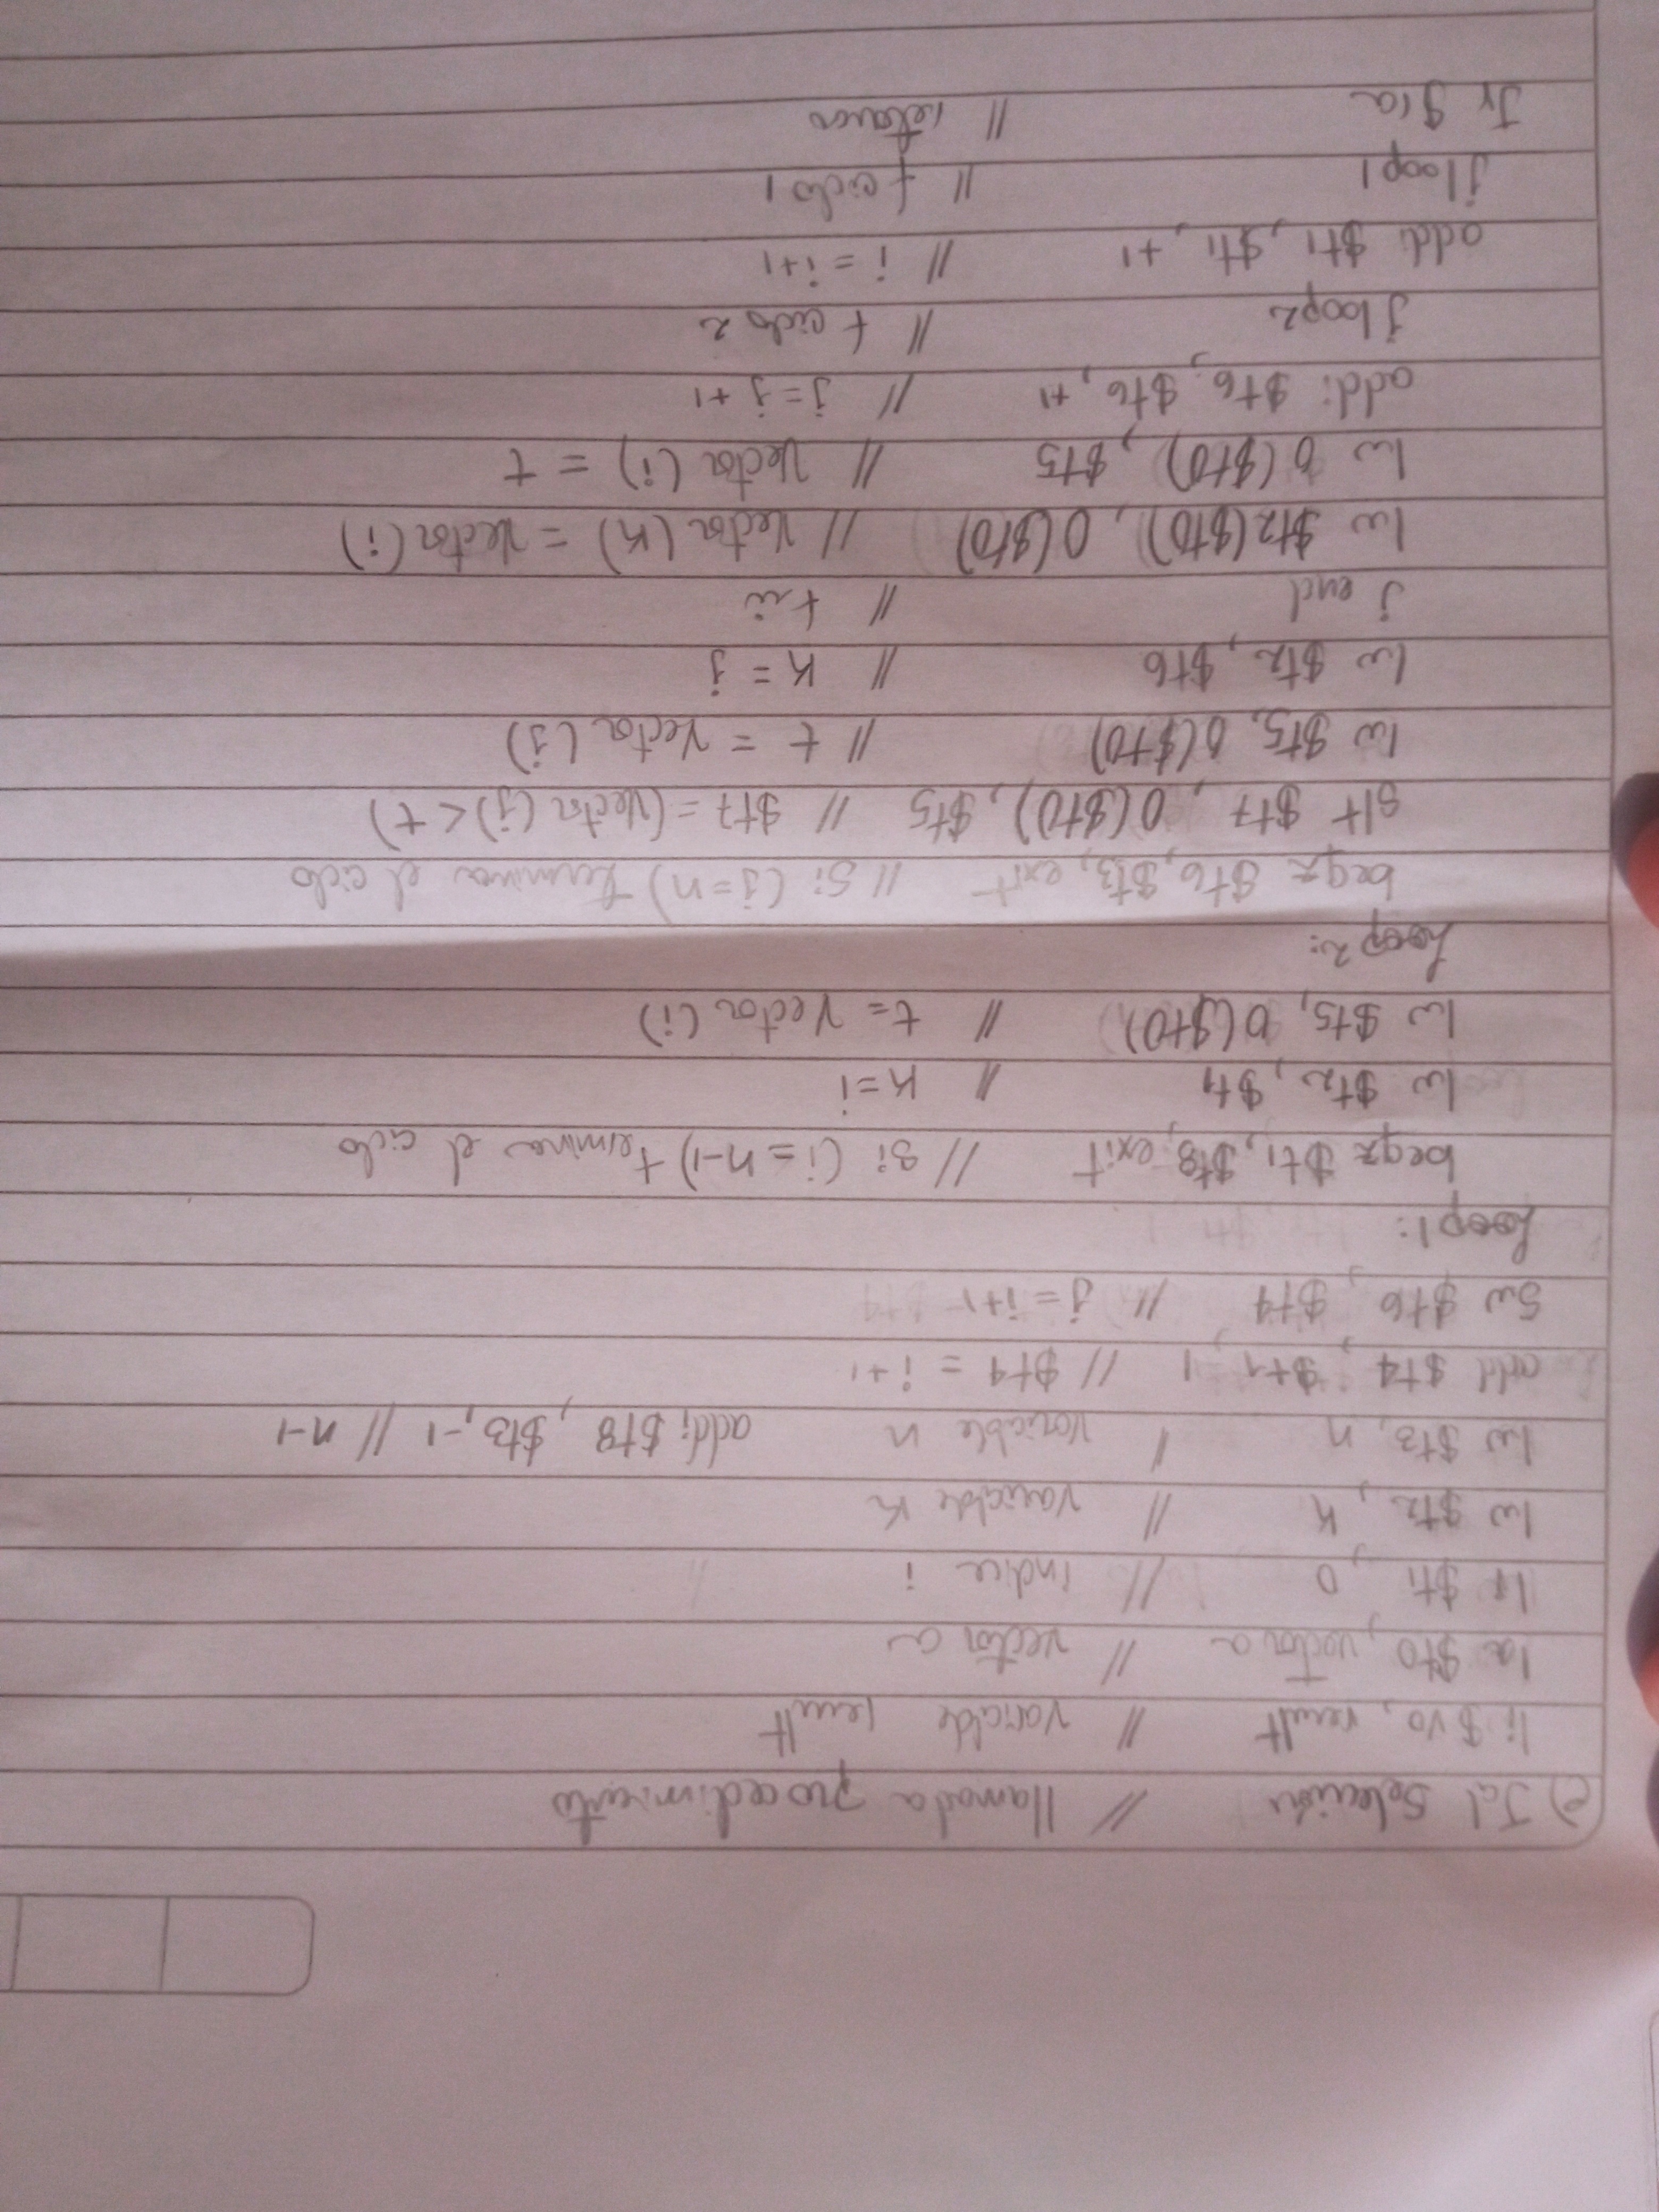 e) Jal Selección // llamada procedimiento
li $v0, result // variable result
la $t0, vector a // vector a
li $t1, 0 // indice i
lw $t2, K // variable K
lw $t3, n / variable n addi $t8, $t3, -1 // n-1
add $t4, $t1, 1 // $t4 = i+1
Sw $t6, $t4 // j = i+1
Loop1:
beqz $t1, $t8, exit // si (i=n-1) termina el ciclo
lw $t2, $t1 // K=i
lw $t5, 0($t0) // t= Vector(i)
Loop2:
beqz $t6, $t3, exit // Si (j=n) termina el ciclo
slt $t7, 0($t0), $t5 // $t7 = (Vector(j) < t)
lw $t5, 0($t0) // t = Vector(j)
lw $t2, $t6 // K = j
j end //
lw $t2($t0), 0($t0) // Vector(K) = Vector(i)
lw 0($t0), $t5 // Vector(i) = t
addi $t6, $t6, +1 // j=j+1
j loop2 // f ciclo 2
addi $t1, $t1, +1 // i = i+1
j loop1 // f ciclo 1
Jr $ra // retorno